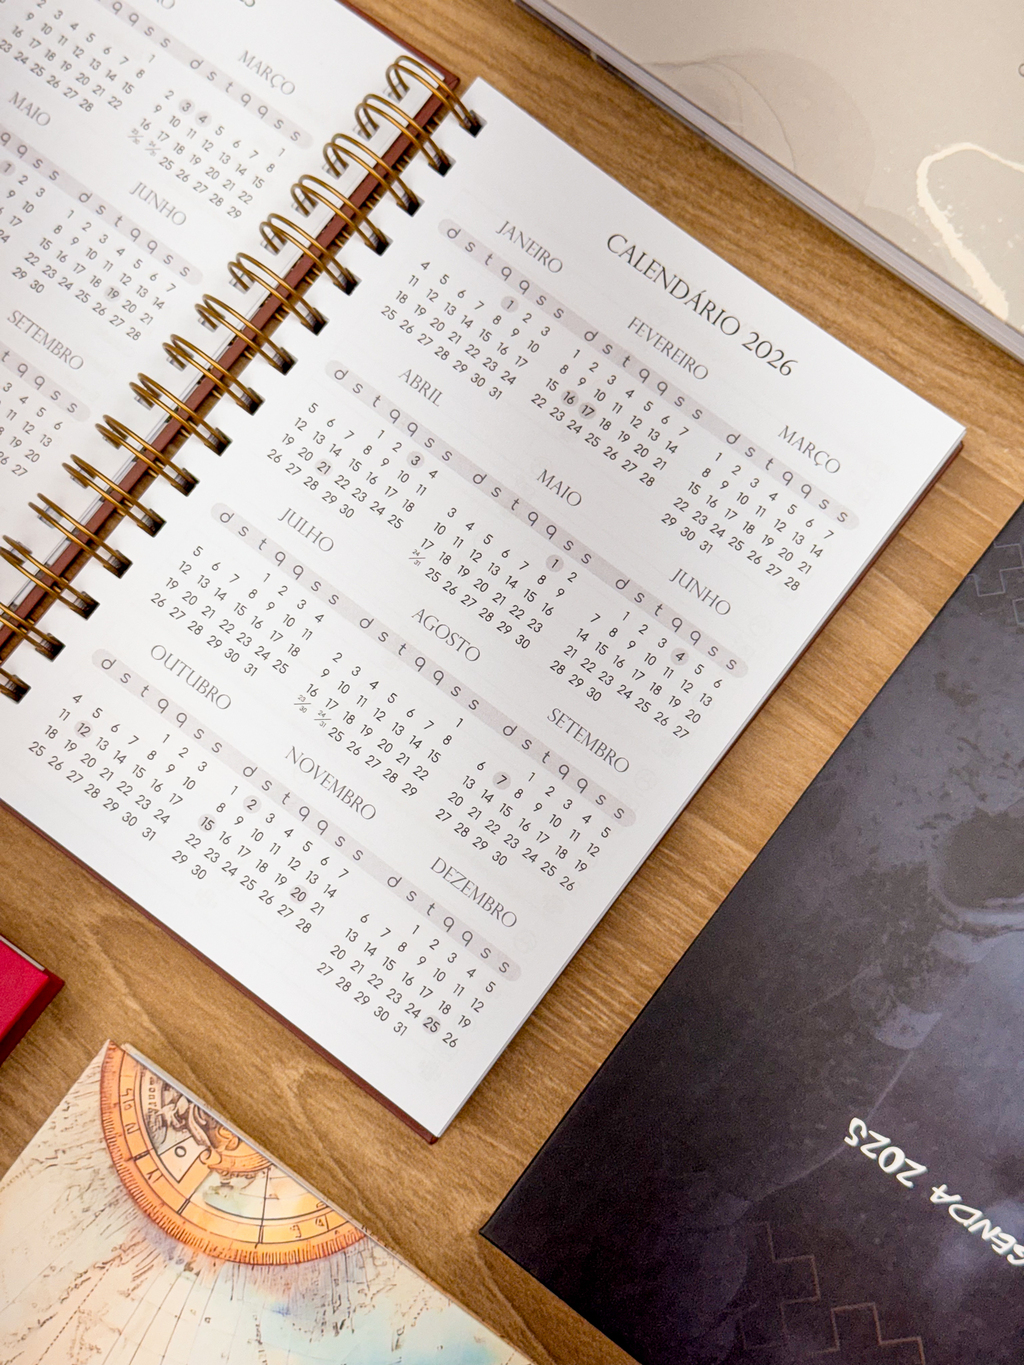 MARÇO
d s t q q s s
1
2 3 4 5 6 7 8
9 10 11 12 13 14 15
16 17 18 19 20 21 22
23/30 24/31 25 26 27 28 29
MAIO
q q s s
1 2 3
9 10
JUNHO
d s t q q s s
1 2 3 4 5 6 7
8 9 10 11 12 13 14
15 16 17 18 19 20 21
22 23 24 25 26 27 28
29 30
SETEMBRO
q q s s
3 4 5 6
11 12 13
18 19 20
26 27
CALENDÁRIO 2026
JANEIRO
d s t q q s s
1 2 3
4 5 6 7 8 9 10
11 12 13 14 15 16 17
18 19 20 21 22 23 24
25 26 27 28 29 30 31
FEVEREIRO
d s t q q s s
1 2 3 4 5 6 7
8 9 10 11 12 13 14
15 16 17 18 19 20 21
22 23 24 25 26 27 28
MARÇO
d s t q q s s
1 2 3 4 5 6 7
8 9 10 11 12 13 14
15 16 17 18 19 20 21
22 23 24 25 26 27 28
29 30 31
ABRIL
d s t q q s s
1 2 3 4
5 6 7 8 9 10 11
12 13 14 15 16 17 18
19 20 21 22 23 24 25
26 27 28 29 30
MAIO
d s t q q s s
1 2
3 4 5 6 7 8 9
10 11 12 13 14 15 16
17 18 19 20 21 22 23
24/31 25 26 27 28 29 30
JUNHO
d s t q q s s
1 2 3 4 5 6
7 8 9 10 11 12 13
14 15 16 17 18 19 20
21 22 23 24 25 26 27
28 29 30
JULHO
d s t q q s s
1 2 3 4
5 6 7 8 9 10 11
12 13 14 15 16 17 18
19 20 21 22 23 24 25
26 27 28 29 30 31
AGOSTO
d s t q q s s
1
2 3 4 5 6 7 8
9 10 11 12 13 14 15
16 17 18 19 20 21 22
23/30 24/31 25 26 27 28 29
SETEMBRO
d s t q q s s
1 2 3 4 5
6 7 8 9 10 11 12
13 14 15 16 17 18 19
20 21 22 23 24 25 26
27 28 29 30
OUTUBRO
d s t q q s s
1 2 3
4 5 6 7 8 9 10
11 12 13 14 15 16 17
18 19 20 21 22 23 24
25 26 27 28 29 30 31
NOVEMBRO
d s t q q s s
1 2 3 4 5 6 7
8 9 10 11 12 13 14
15 16 17 18 19 20 21
22 23 24 25 26 27 28
29 30
DEZEMBRO
d s t q q s s
1 2 3 4 5
6 7 8 9 10 11 12
13 14 15 16 17 18 19
20 21 22 23 24 25 26
27 28 29 30 31
GENDA 2025